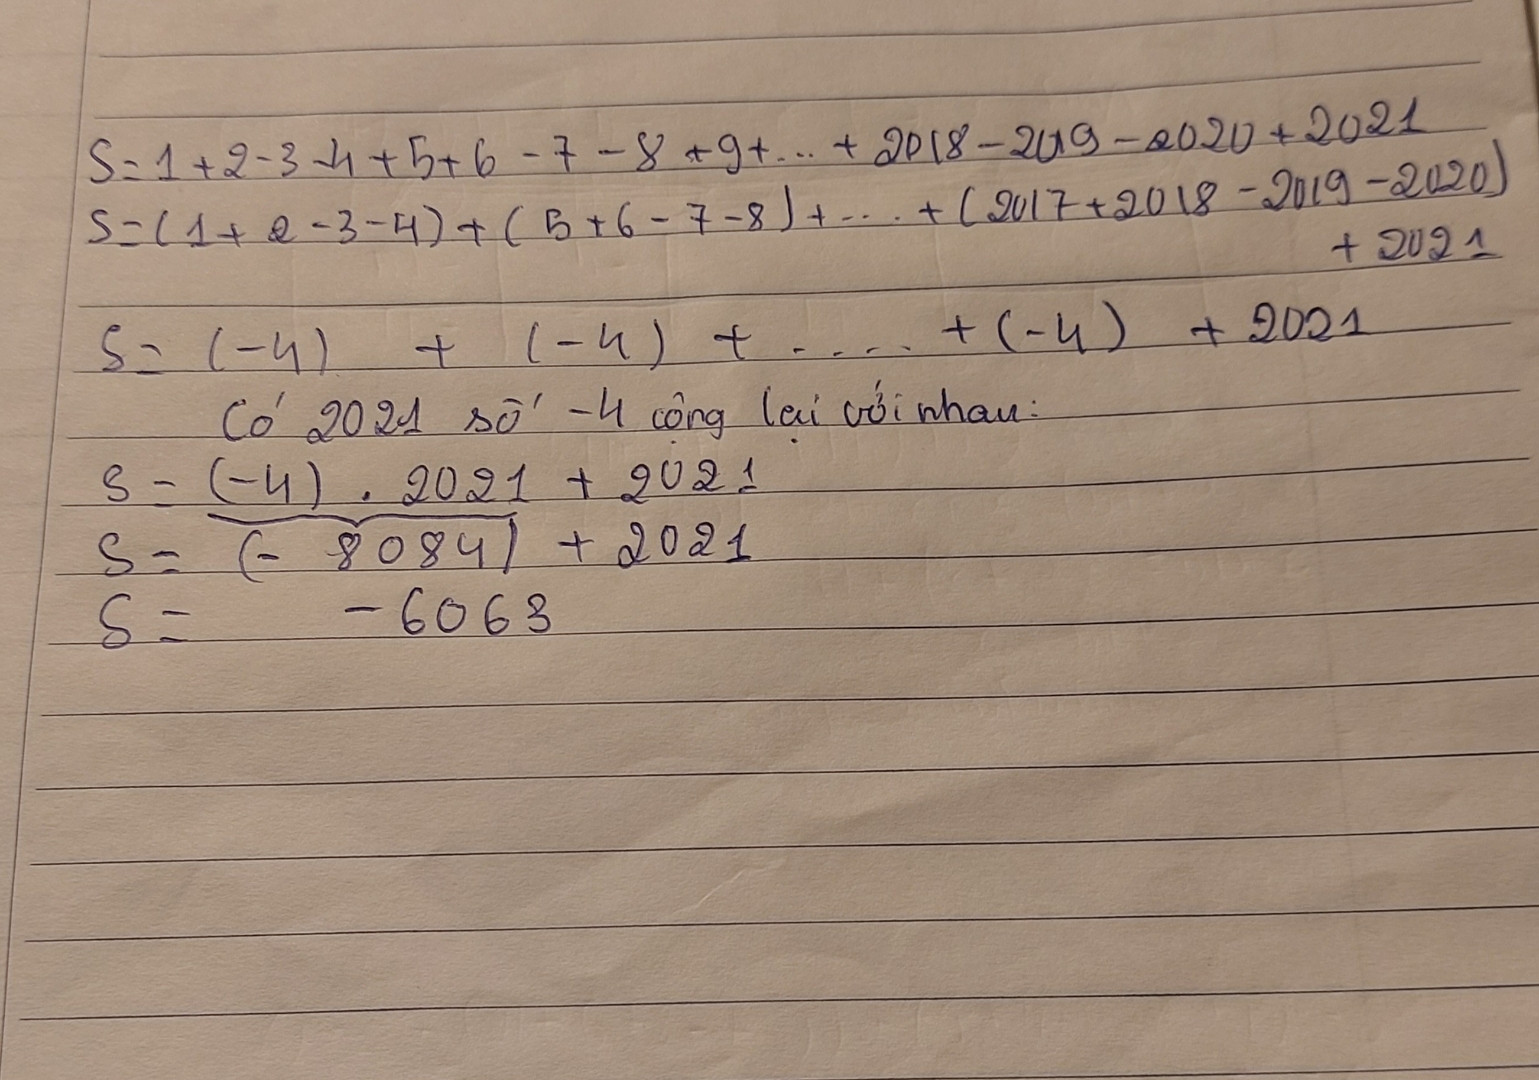 S = 1 + 2 - 3 - 4 + 5 + 6 - 7 - 8 + 9 + ... + 2018 - 2019 - 2020 + 2021
S = (1 + 2 - 3 - 4) + (5 + 6 - 7 - 8) + .... + (2017 + 2018 - 2019 - 2020)
+ 2021
S = (-4) + (-4) + ..... + (-4) + 2021
Có 2021 số -4 cộng lại với nhau:
S = (-4) . 2021 + 2021
S = (- 8084) + 2021
S = - 6063